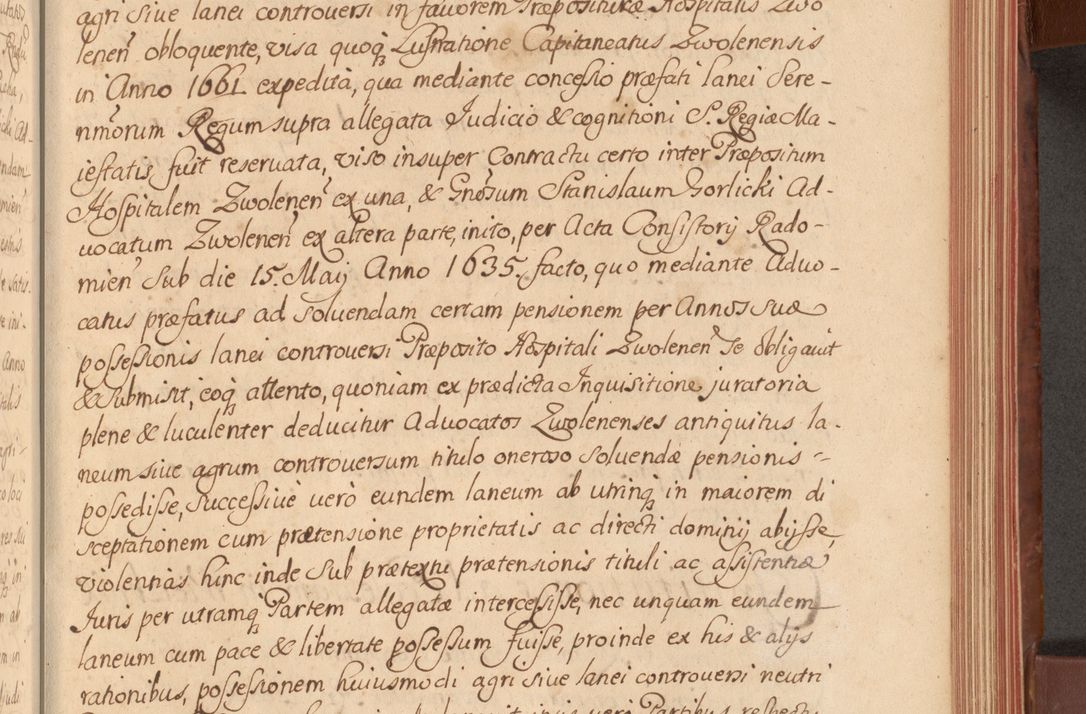 agri siue lanei controuersi in fauorem Præposituræ Hospitalis Zwo
lenen̄ obloquente, visa quoq; Lustratione Capitaneatus Zwolenensis
in Anno 1661 expedita, qua mediante concessio præfati lanei Sere-
nm̄orum Regum supra allegata Judicio & cognitioni S. Regiæ Ma-
iestatis fuit reseruata, viso insuper Contractu certo inter Præpositum
Hospitalem Zwolenen̄ ex una, & Gnōsum Stanislaum Gorlicki Ad-
uocatum Zwolenen̄ ex altera parte, inito, per Acta Consistorij Rado-
mien̄ sub die 15. Maij Anno 1635. facto, quo mediante Aduo-
catus præfatus ad soluendam certam pensionem per Annos suæ
possessionis lanei controuersi Præposito Hospitali Zwolenen̄ se obligauit
& submisit, eoq; attento, quoniam ex prædicta Inquisitione juratoria
plene & luculenter deducitur Aduocatos Zwolenenses antiquitus la-
neum siue agrum controuersum titulo oneroso soluendæ pensionis -
possedisse, Successiuè verò eundem laneum ab utrinq; in maiorem di
sceptationem cum prætensione proprietatis ac directi dominij abijsse,
violentias hinc inde sub prætextu prætensionis tituli ac assistentiæ
Juris per utramq; Partem allegatæ intercessisse, nec unquam eundem
laneum cum pace & libertate possessum fuisse, proinde ex his & alijs
rationibus, possessionem huiusmodi agri siue lanei controuersi neutri
ipsis verò Partibus respectu